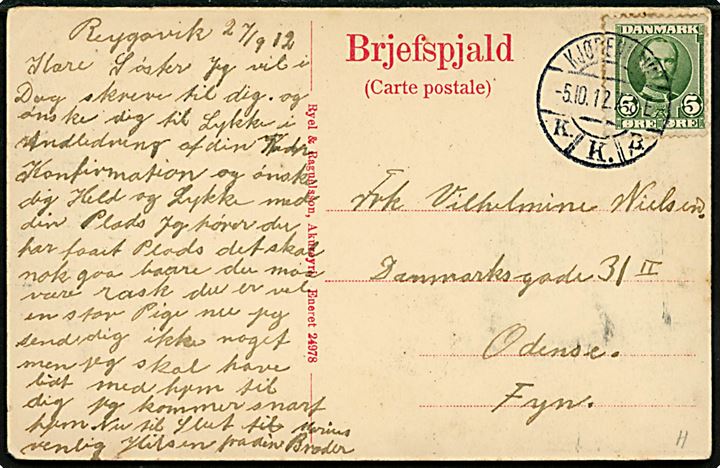 Reygavik 27/9 12
Kære Søster Jeg vil i
Dag skreve til dig. og
ønske dig til Lykke i
Andledning af din
Konfirmation og ønske
dig Held og Lykke med
din Plads Jeg hører du
har faaet Plads det skal
nok gaa baare du maa
være rask du er vel
en stor Pige nu jeg
send dig ikke noget
men jeg skal have
lidt med hjem til
dig jeg kommer snart
hjem Nu til Slut til
venlig Hilsen fra din Broder
Ryel & Ragnarsson, Akureyri. Eneret 24978
Brjefspjald
(Carte postale)
KJØBENHAVN
-5.10.12.
K. K. B.
DANMARK
5 5
ØRE ØRE
Frk Vilhelmine Nielsen.
Danmarksgade 31 II
Odense.
Fyn.
H